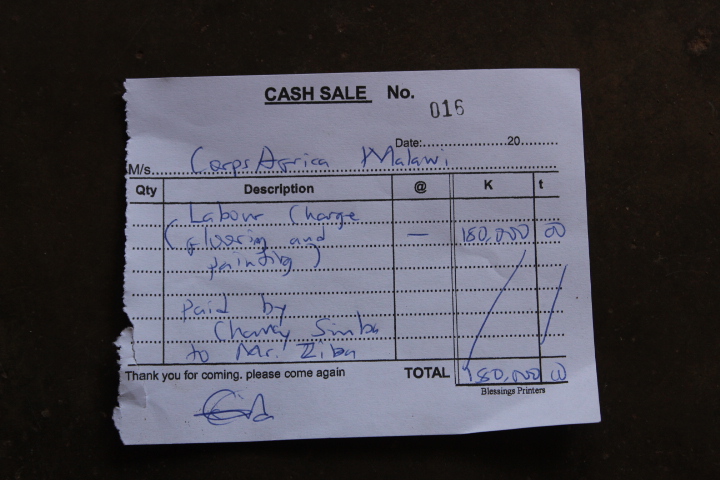 CASH SALE No. 016
Date:....................20.........
M/s. CorpsAfrica Malawi
Qty Description @ K t
Labour Charge
(floering and — 180,000 00
painting)
Paid by
Simba
to Mr. Ziba
Thank you for coming, please come again TOTAL 180,000 00
Blessings Printers